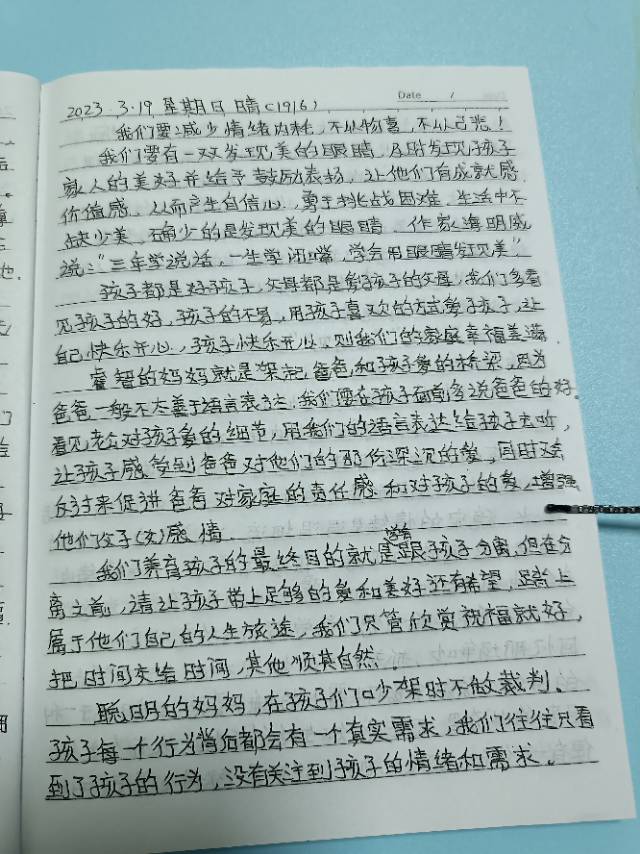 Date /
2023 3.19 星期日 晴(1916)
我们要减少情绪内耗,不以物喜,不以己悲!
我们要有一双发现美的眼睛,及时发现孩子
家人的美好并给予鼓励表扬,让他们有成就感
价值感,从而产生自信心,勇于挑战困难,生活中不
缺少美,确少的是发现美的眼睛,作家海明威
说:“三年学说话,一生学闭嘴,学会用眼睛发现美”,
孩子都是好孩子,父母都是爱孩子的父母,我们多看
见孩子的好,孩子的不易,用孩子喜欢的方式爱孩子,让
自己快乐开心,孩子快乐开心,则我们的家庭幸福美满.
睿智的妈妈就是架起爸爸和孩子爱的桥梁,因为
爸爸一般不太善于语言表达,我们要在孩子面前多说爸爸的好,
看见老公对孩子爱的细节,用我们的语言表达给孩子去听,
让孩子感受到爸爸对他们的那份深沉的爱,同时又会
反过来促进爸爸对家庭的责任感和对孩子的爱,增强
他们父子(女)感情.
我们养育孩子的最终目的就是跟孩子分离,但在分
离之前,请让孩子带上足够的爱和美好还有希望,踏上
属于他们自己的人生旅途,我们只管欣赏祝福就好,
把时间交给时间,其他顺其自然.
聪明的妈妈,在孩子们吵架时不做裁判.
孩子每一个行为背后都会有一个真实需求,我们往往只看
到了孩子的行为,没有关注到孩子的情绪和需求.